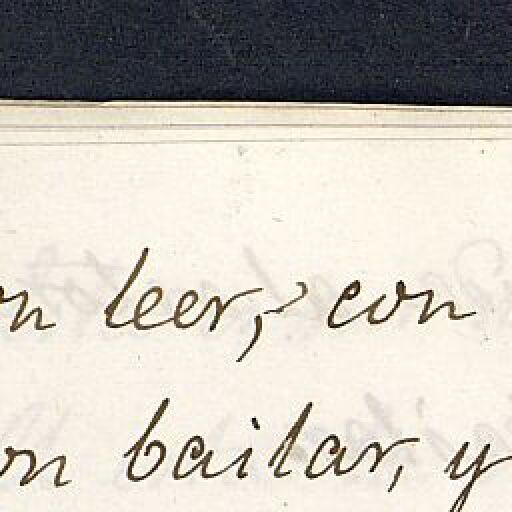 on leer, con
on bailar, y